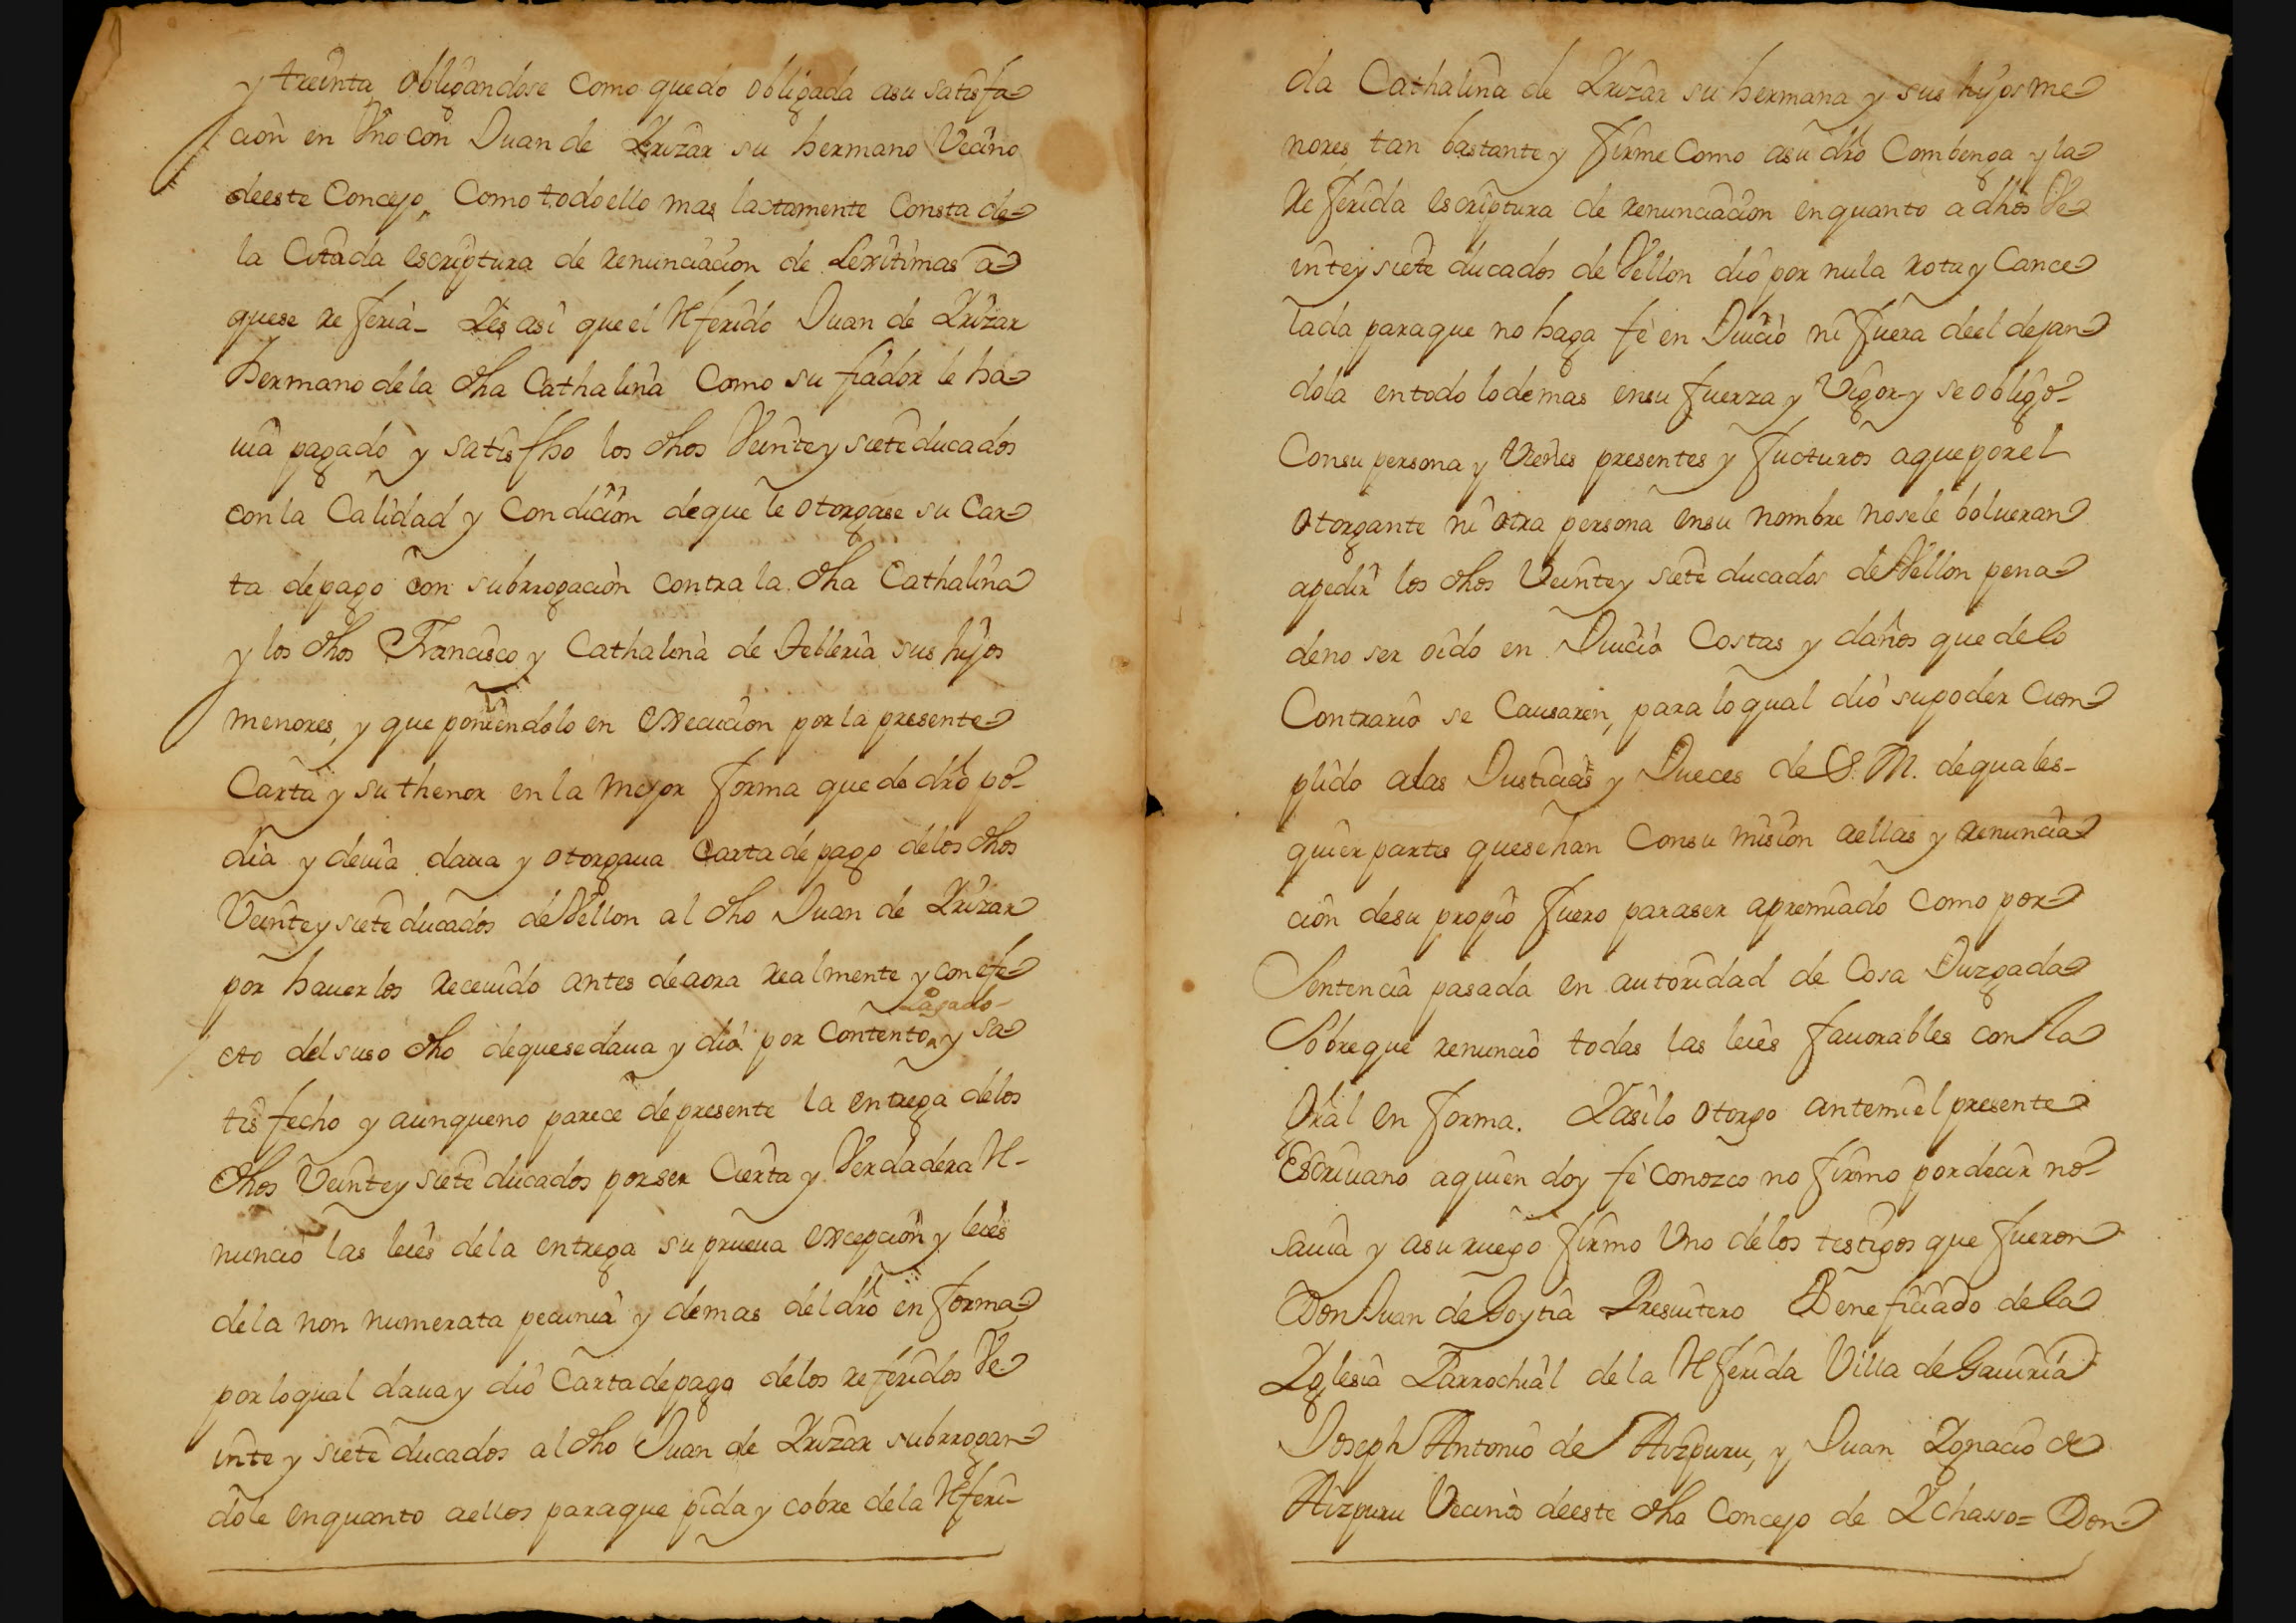 y treinta obligandose como quedo obligada asu satisfa
cion en Uno con Juan de Yrizar su hermano Vecino
deeste Concejo, Como todo ello mas lactamente Consta de
la Citada escriptura de renunciacion de Lexitimas a
quese referia_ Yes asi que el Referido Juan de Yrizar
hermano dela dha Cathalina Como su fiador le ha
uia pagado y satisfho los dhos Veinte y siete ducados
con la Calidad y Condicion deque le otorgase su Car
ta depago con subrrogacion contra la dha Cathalina
y los dhos Francisco y Cathalina de Telleria sus hijos
menores, y que poniendolo en execucion por la presente
Carta y su thenor en la mejor forma que de dro po
dia y deuia daua y otorgaua Carta de pago delos dhos
Veinte y siete ducados de Vellon al dho Juan de Yrizar
por hauerlos receuido antes deaora realmente y con efe
cto del suso dho dequesedaua y dio por Contento pagado y sa
tisfecho y aunqueno parece depresente la entrega delos
dhos Veinte y siete ducados por ser Cierta y Verdadera Re
nuncio las leies dela entrega su prueua excepcion y leies
dela non numerata pecunia y demas del dro en forma
por loqual daua y dio Carta depago delos referidos Ve
inte y siete ducados al dho Juan de Yrizar subrrogan
dole enquanto aellos paraque pida y cobre dela Referi
da Cathalina de Yrizar su hermana y sus hijos me
nores tan bastante y firme Como asu dro Combenga y la
Referida escriptura de renunciacion enquanto a dhos Ve
inte y siete ducados de Vellon dio por nula rota y Cance
lada paraque no haga fe en Juicio ni fuera deel dejan
dola en todo lo demas ensu fuerza y Vigor y se obligo
Consu persona y Vienes presentes y fucturos aque por el
otorgante ni otra persona ensu nombre nosele bolueran
apedir los dhos Veinte y siete ducados de Vellon pena
deno ser oido en Juicio Costas y daños que delo
Contrario se Causaren, para lo qual dio supoder Cum
plido alas Justicias y Jueces de S. M. dequales_
quier partes quesehan Consu mision aellas y renuncia
cion desu propio fuero paraser apremiado como por
Sentencia pasada en autoridad de Cosa Juzgada
Sobreque renuncio todas las leies fauorables con la
Gral en forma. Yasilo otorgo antemi el presente
Escriuano aquien doy fe conozco no firmo por decir no
sauia y asu ruego firmo Uno delos testigos que fueron
Don Juan de Goytia Presuitero Beneficiado dela
Yglesia Parrochial dela Referida Villa de Gauiria
Joseph Antonio de Aizpuru, y Juan Ygnacio de
Aizpuru Vecinos deeste dho Concejo de Ychasso= Don